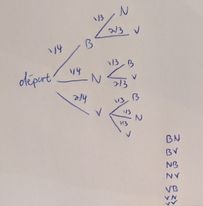 1/3 N
1/4 B 2/3 V
départ 1/4 N 1/3 B
2/3 V
2/4 V 1/3 B
1/3 N
1/3 V
BN
BV
NB
NV
VB
VN
VV